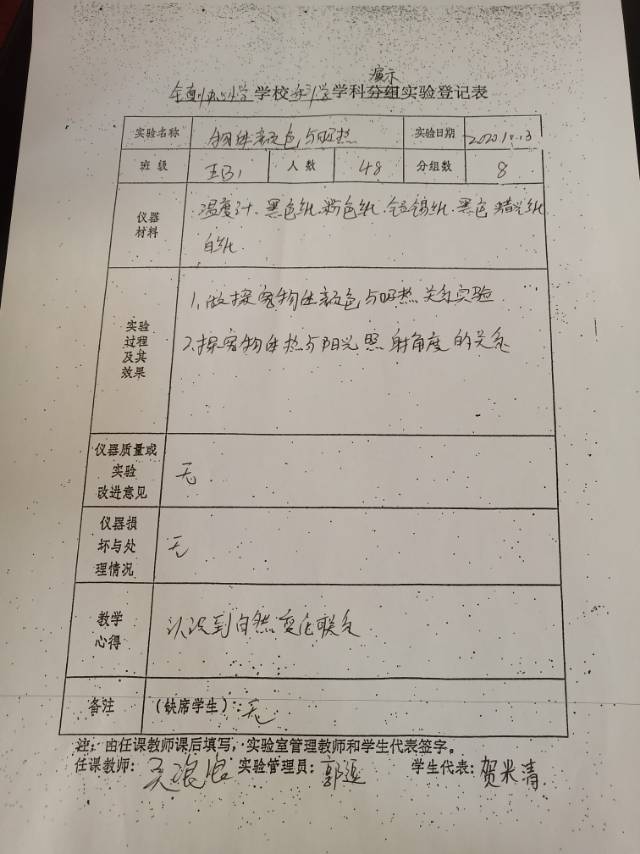 演示
中心小学学校科学学科分组实验登记表
实验名称 物体颜色与吸热 实验日期 2020.10.13
班级 五3 人数 48 分组数 8
仪器材料 温度计.黑色纸.粉色纸.铝锡纸.黑色蜡光纸
白纸
实验过程及其效果 1.做探究物体颜色与吸热关系实验
2.探究物体热与阳光照射角度的关系
仪器质量或实验改进意见 无
仪器损坏与处理情况 无
教学心得 认识到自然变化联系
备注 (缺席学生):无
注:由任课教师课后填写,实验室管理教师和学生代表签字。
任课教师: 实验管理员:郭 学生代表:贺米清